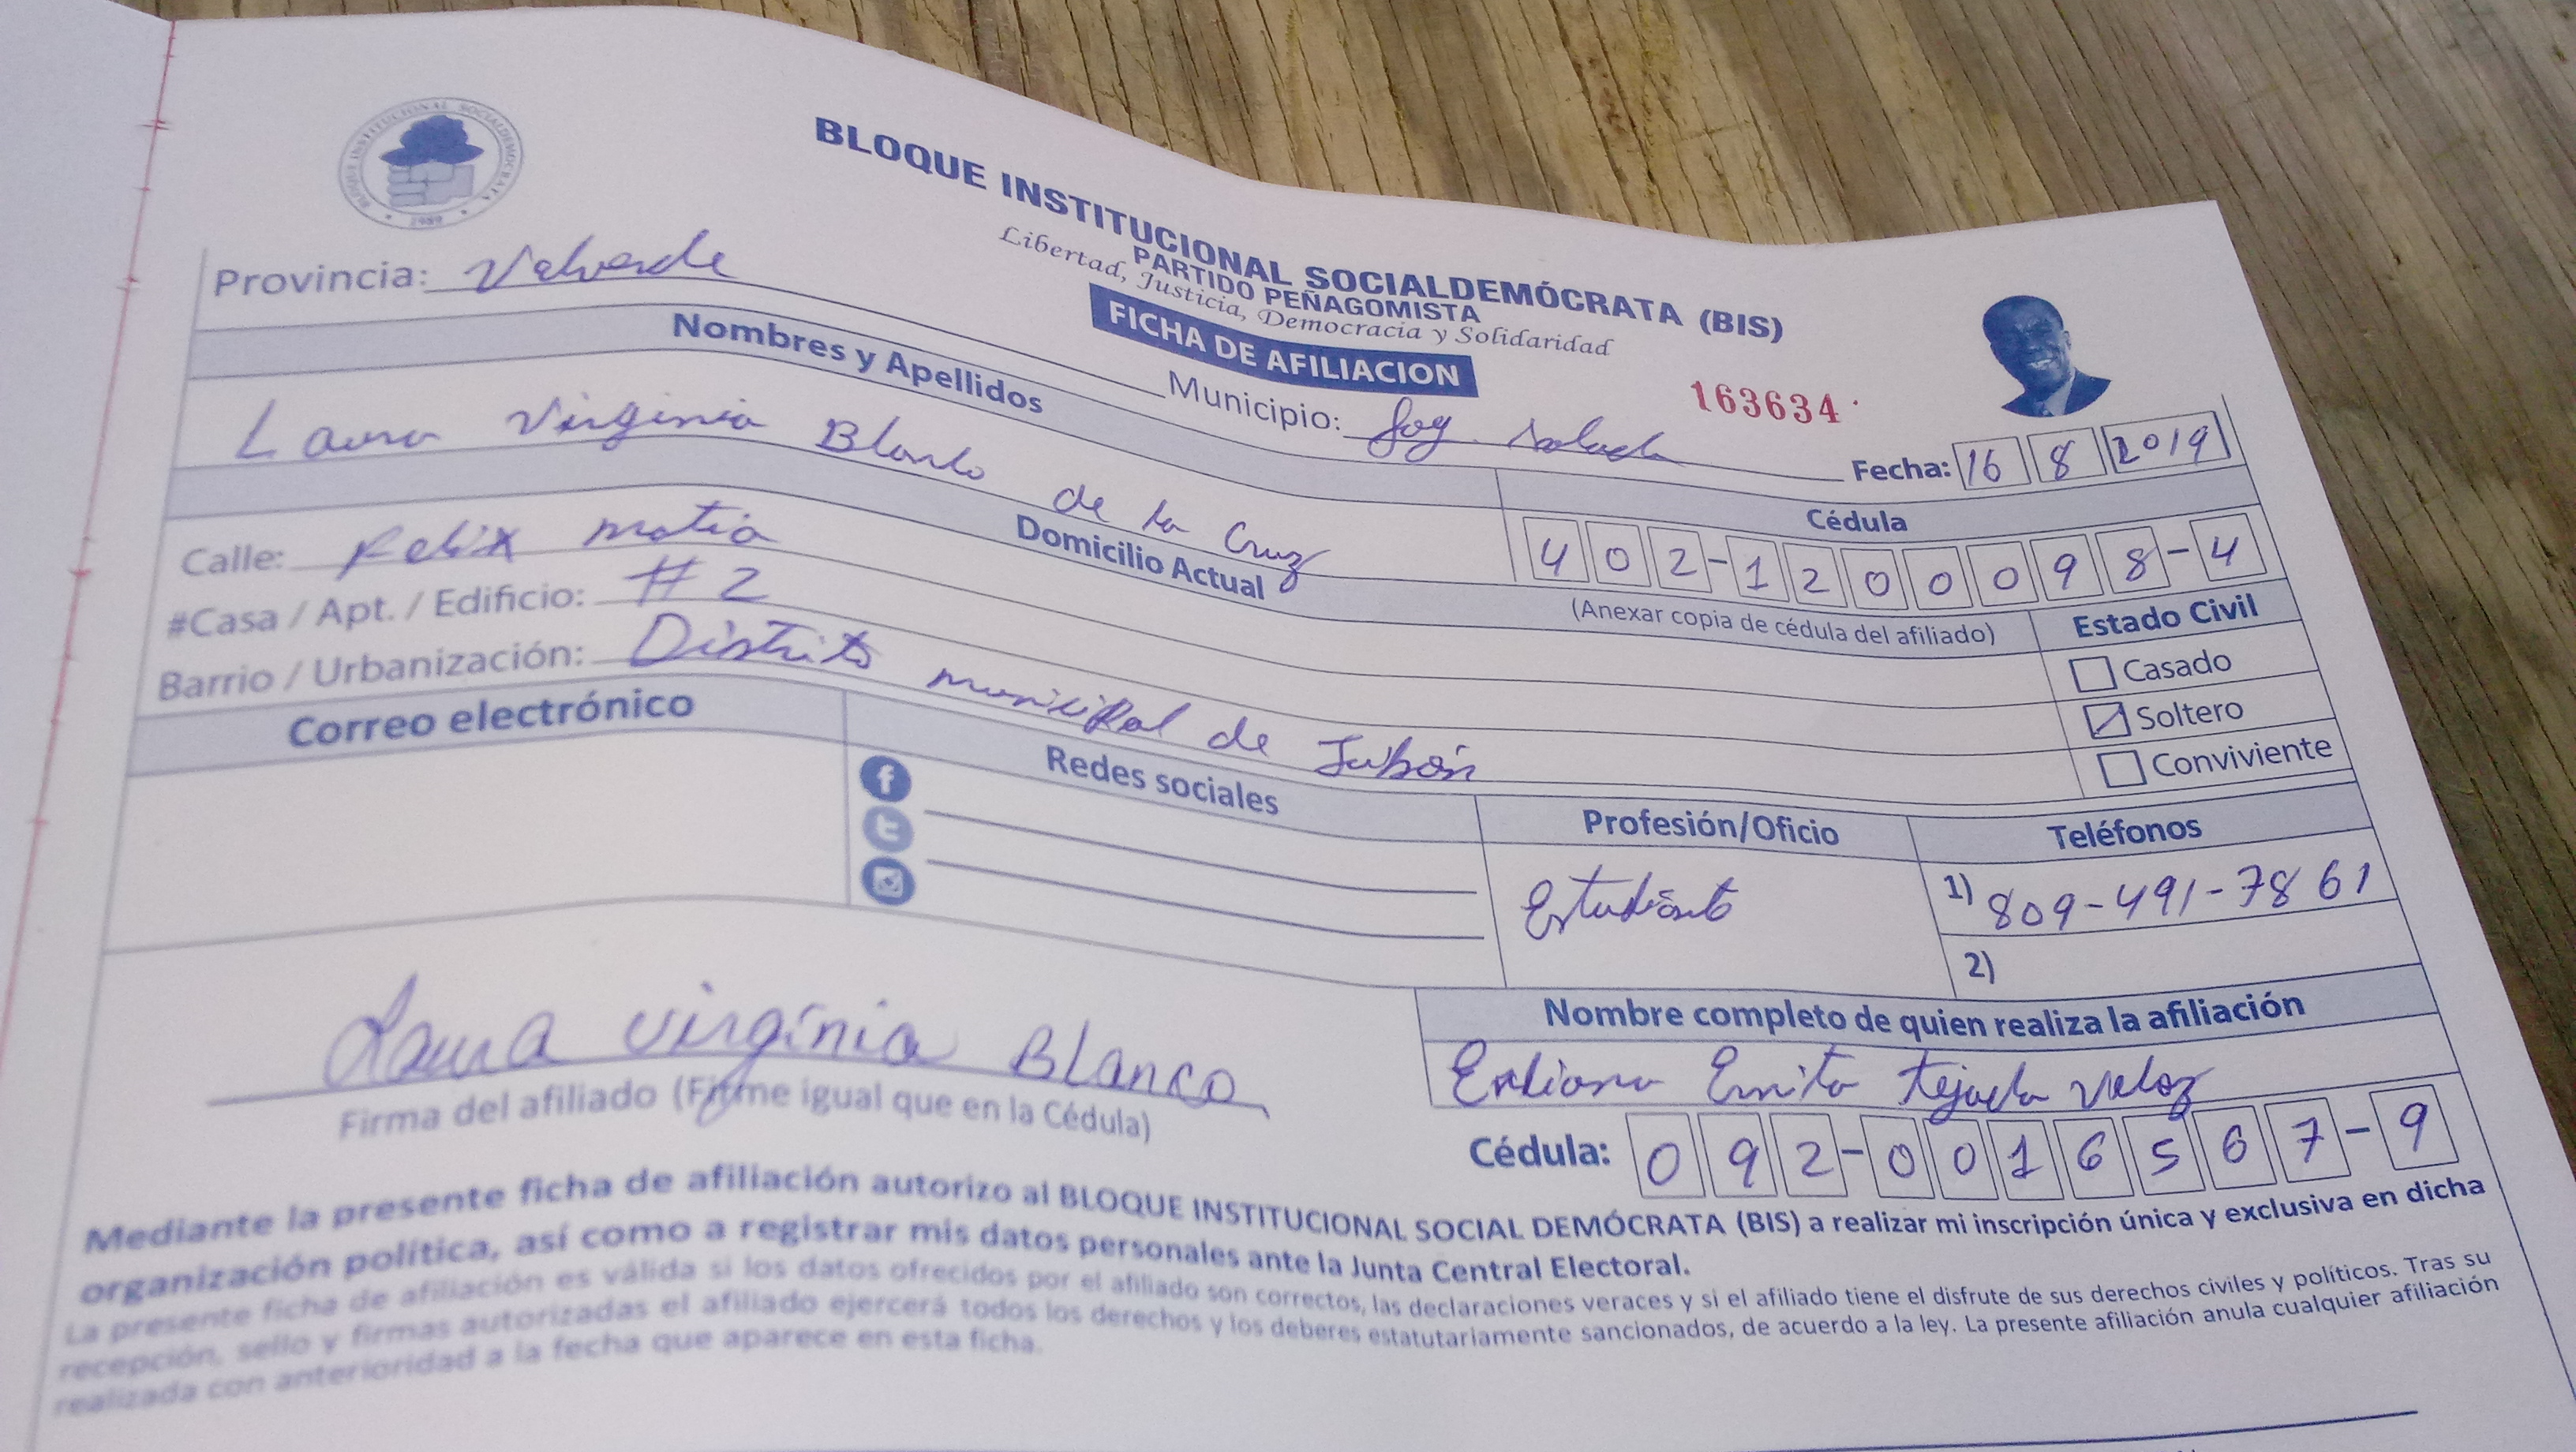 BLOQUE INSTITUCIONAL SOCIALDEMÓCRATA
1989
BLOQUE INSTITUCIONAL SOCIALDEMÓCRATA (BIS)
PARTIDO PEÑAGOMISTA
Libertad, Justicia, Democracia y Solidaridad
FICHA DE AFILIACION
163634
Provincia: Valverde Municipio:
Fecha: 16 8 2019
Nombres y Apellidos Cédula
Laura Virginia Blanco de la Cruz 402-1200098-4
(Anexar copia de cédula del afiliado)
Domicilio Actual Estado Civil
Calle: Felix matia
#Casa / Apt. / Edificio: #2
Barrio / Urbanización: Distrito municipal de
Casado
Soltero
Conviviente
Correo electrónico Redes sociales Profesión/Oficio Teléfonos
Estudiante
1) 809-491-7861
2)
Nombre completo de quien realiza la afiliación
Tejada Veloz
Cédula: 092-0016567-9
Laura Virginia Blanco
Firma del afiliado (Firme igual que en la Cédula)
Mediante la presente ficha de afiliación autorizo al BLOQUE INSTITUCIONAL SOCIAL DEMÓCRATA (BIS) a realizar mi inscripción única y exclusiva en dicha
organización política, así como a registrar mis datos personales ante la Junta Central Electoral.
La presente ficha de afiliación es válida si los datos ofrecidos por el afiliado son correctos, las declaraciones veraces y si el afiliado tiene el disfrute de sus derechos civiles y políticos. Tras su
recepción, sello y firmas autorizadas el afiliado ejercerá todos los derechos y los deberes estatutariamente sancionados, de acuerdo a la ley. La presente afiliación anula cualquier afiliación
realizada con anterioridad a la fecha que aparece en esta ficha.